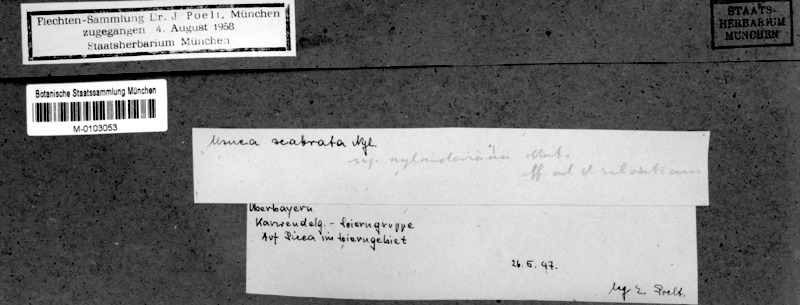 Flechten-Sammlung Dr. J. Poelt, München
zugegangen 4. August 1958
Staatsherbarium München
STAATS-
HERBARIUM
MÜNCHEN
Botanische Staatssammlung München
M-0103053
Usnea scabrata Nyl.
ssp. nylanderiana Mot.
aff. ad U. silvaticam
Oberbayern
Karwendelg. - Soierngruppe
Auf Picea im Soierngebiet
26. 5. 47.
Poelt.